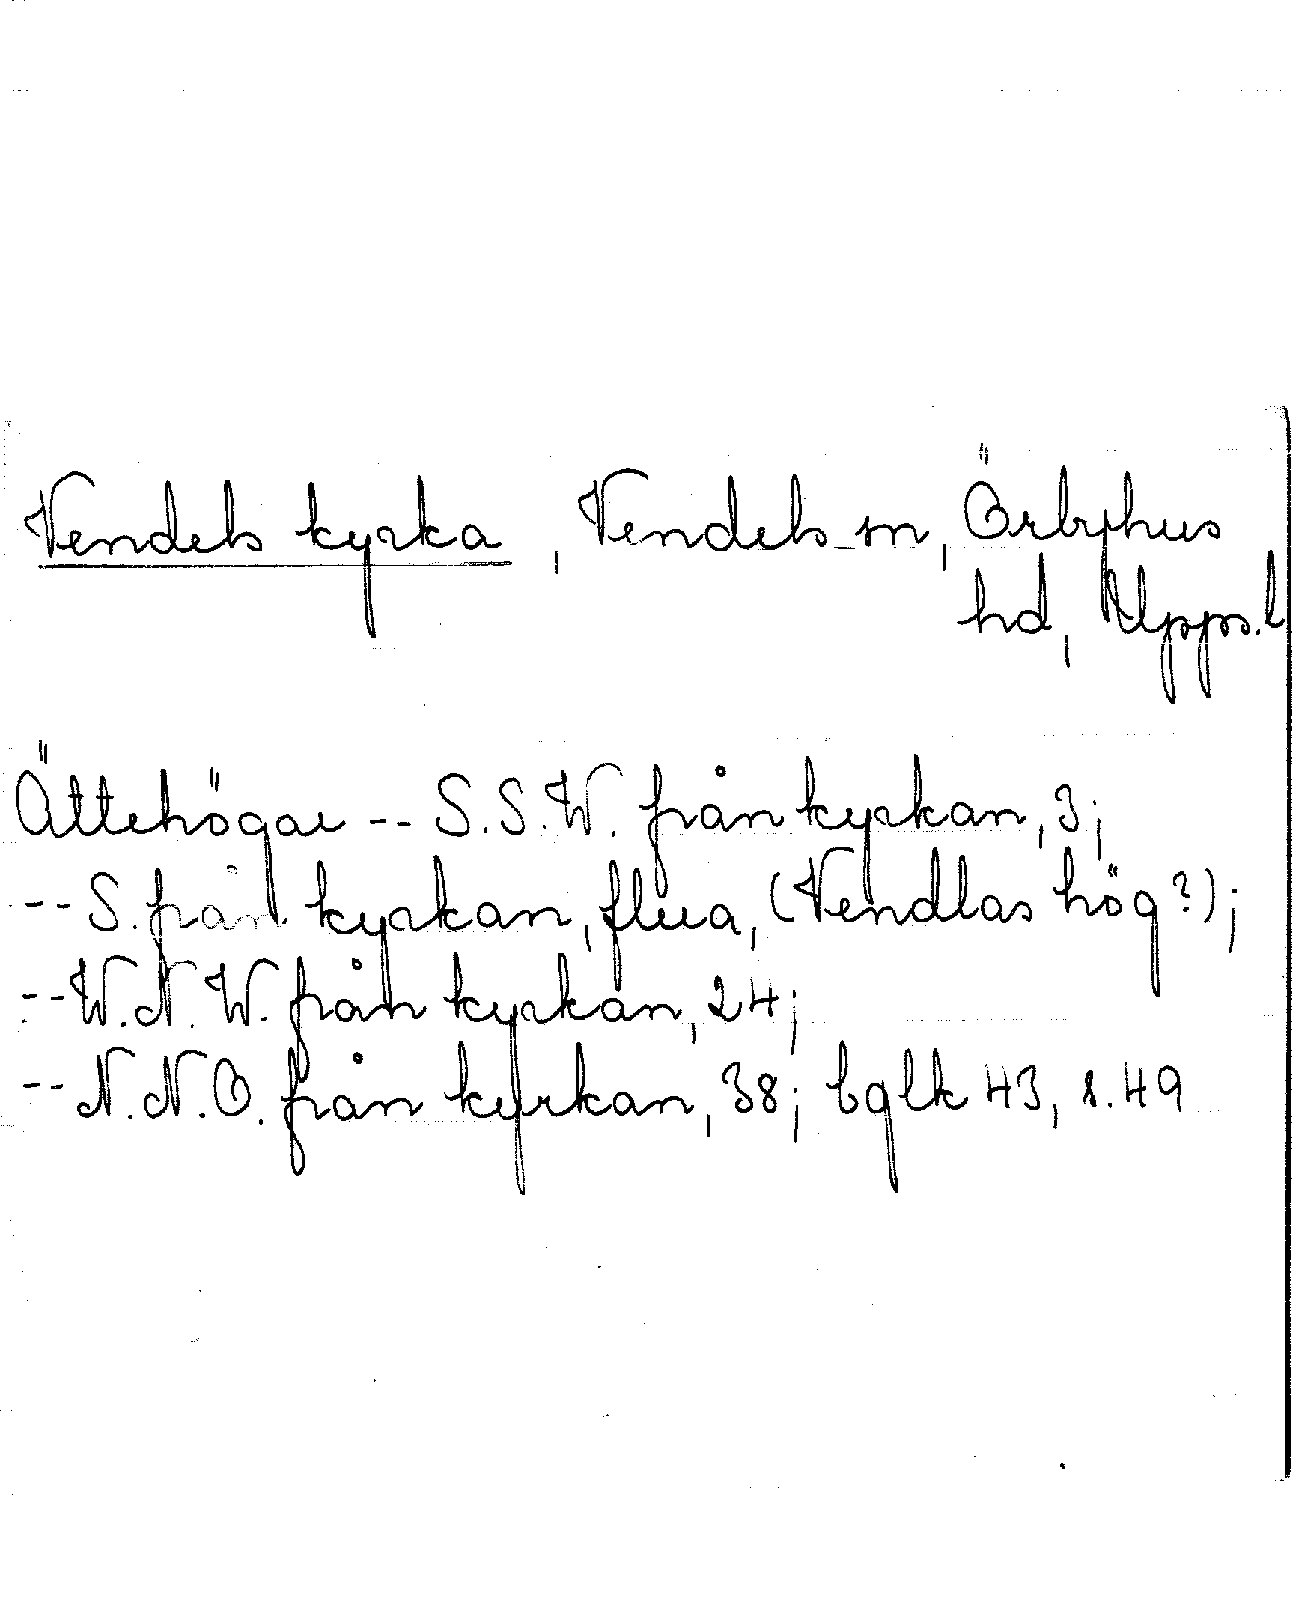 Vendels kyrka, Vendels sn, Örbyhus
hd, Upps. l
Ättehögar -- S.S.W. från kyrkan, 3;
-- S. från kyrkan, flera, (Vendlas hög?);
-- W.N.W. från kyrkan, 24;
-- N.N.O. från kyrkan, 38; bglk 43, s. 49